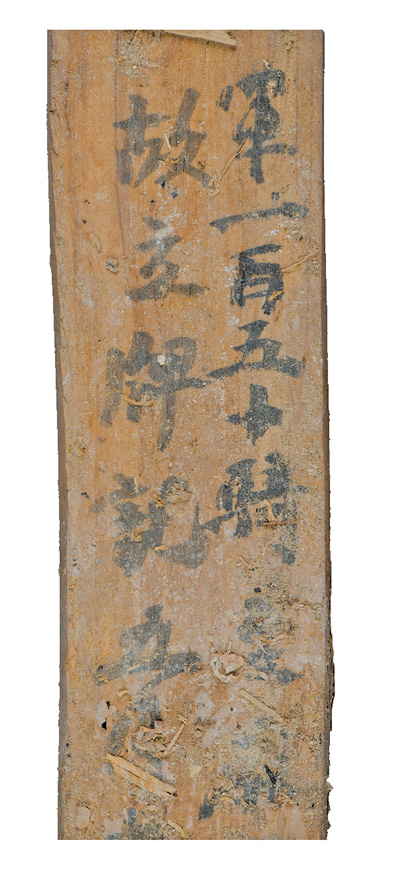 軍一百五十騎
故立牌記五